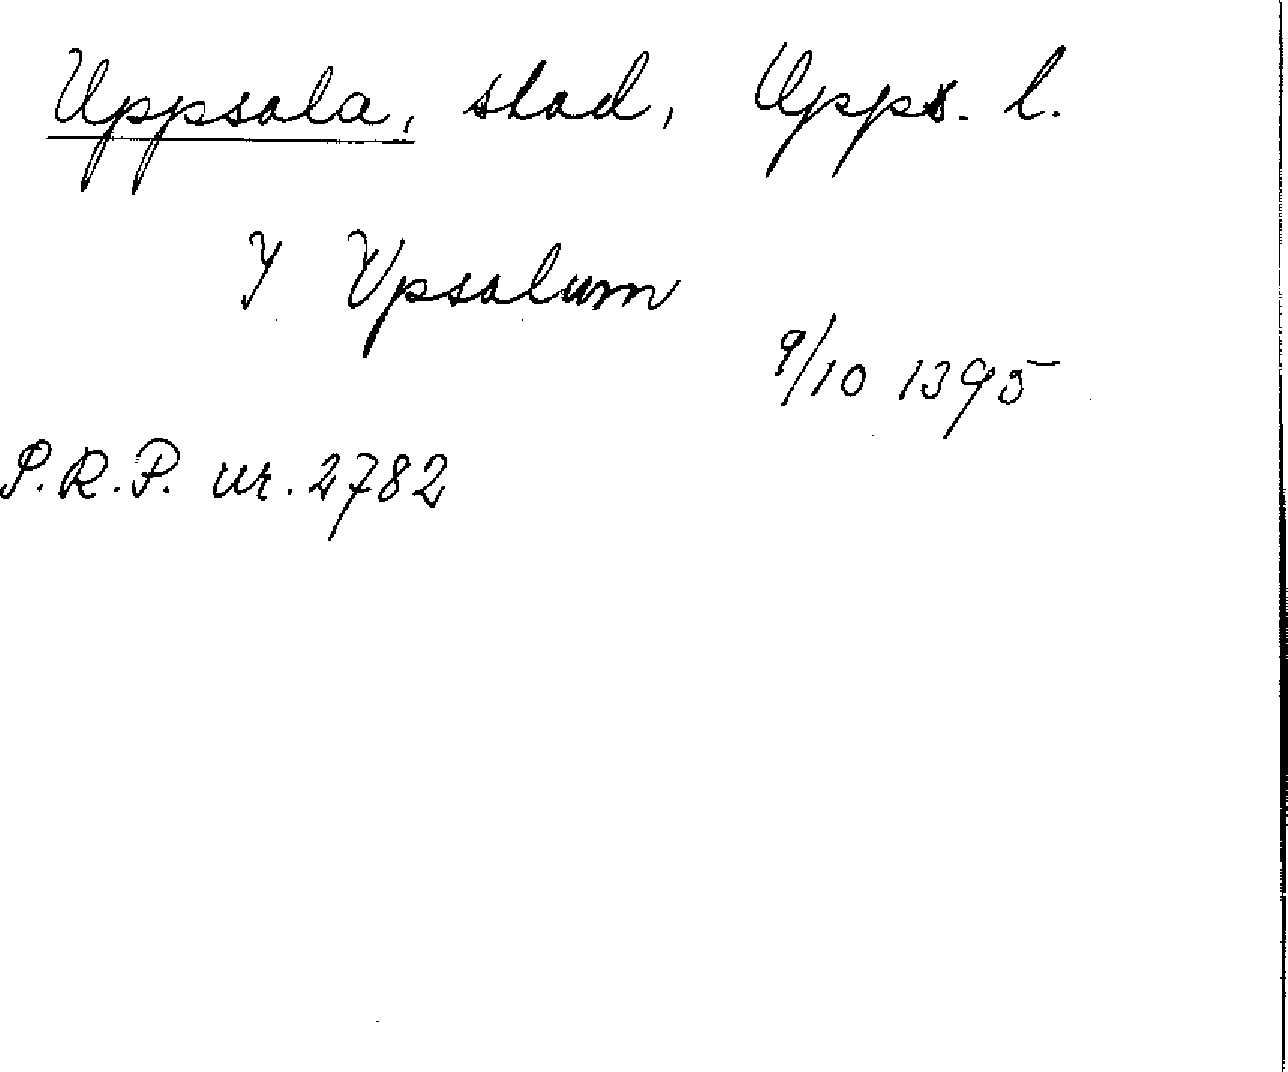 Uppsala, stad, Upps. l.
Y Vpsalum
9/10 1395
S.R.P. nr. 2782